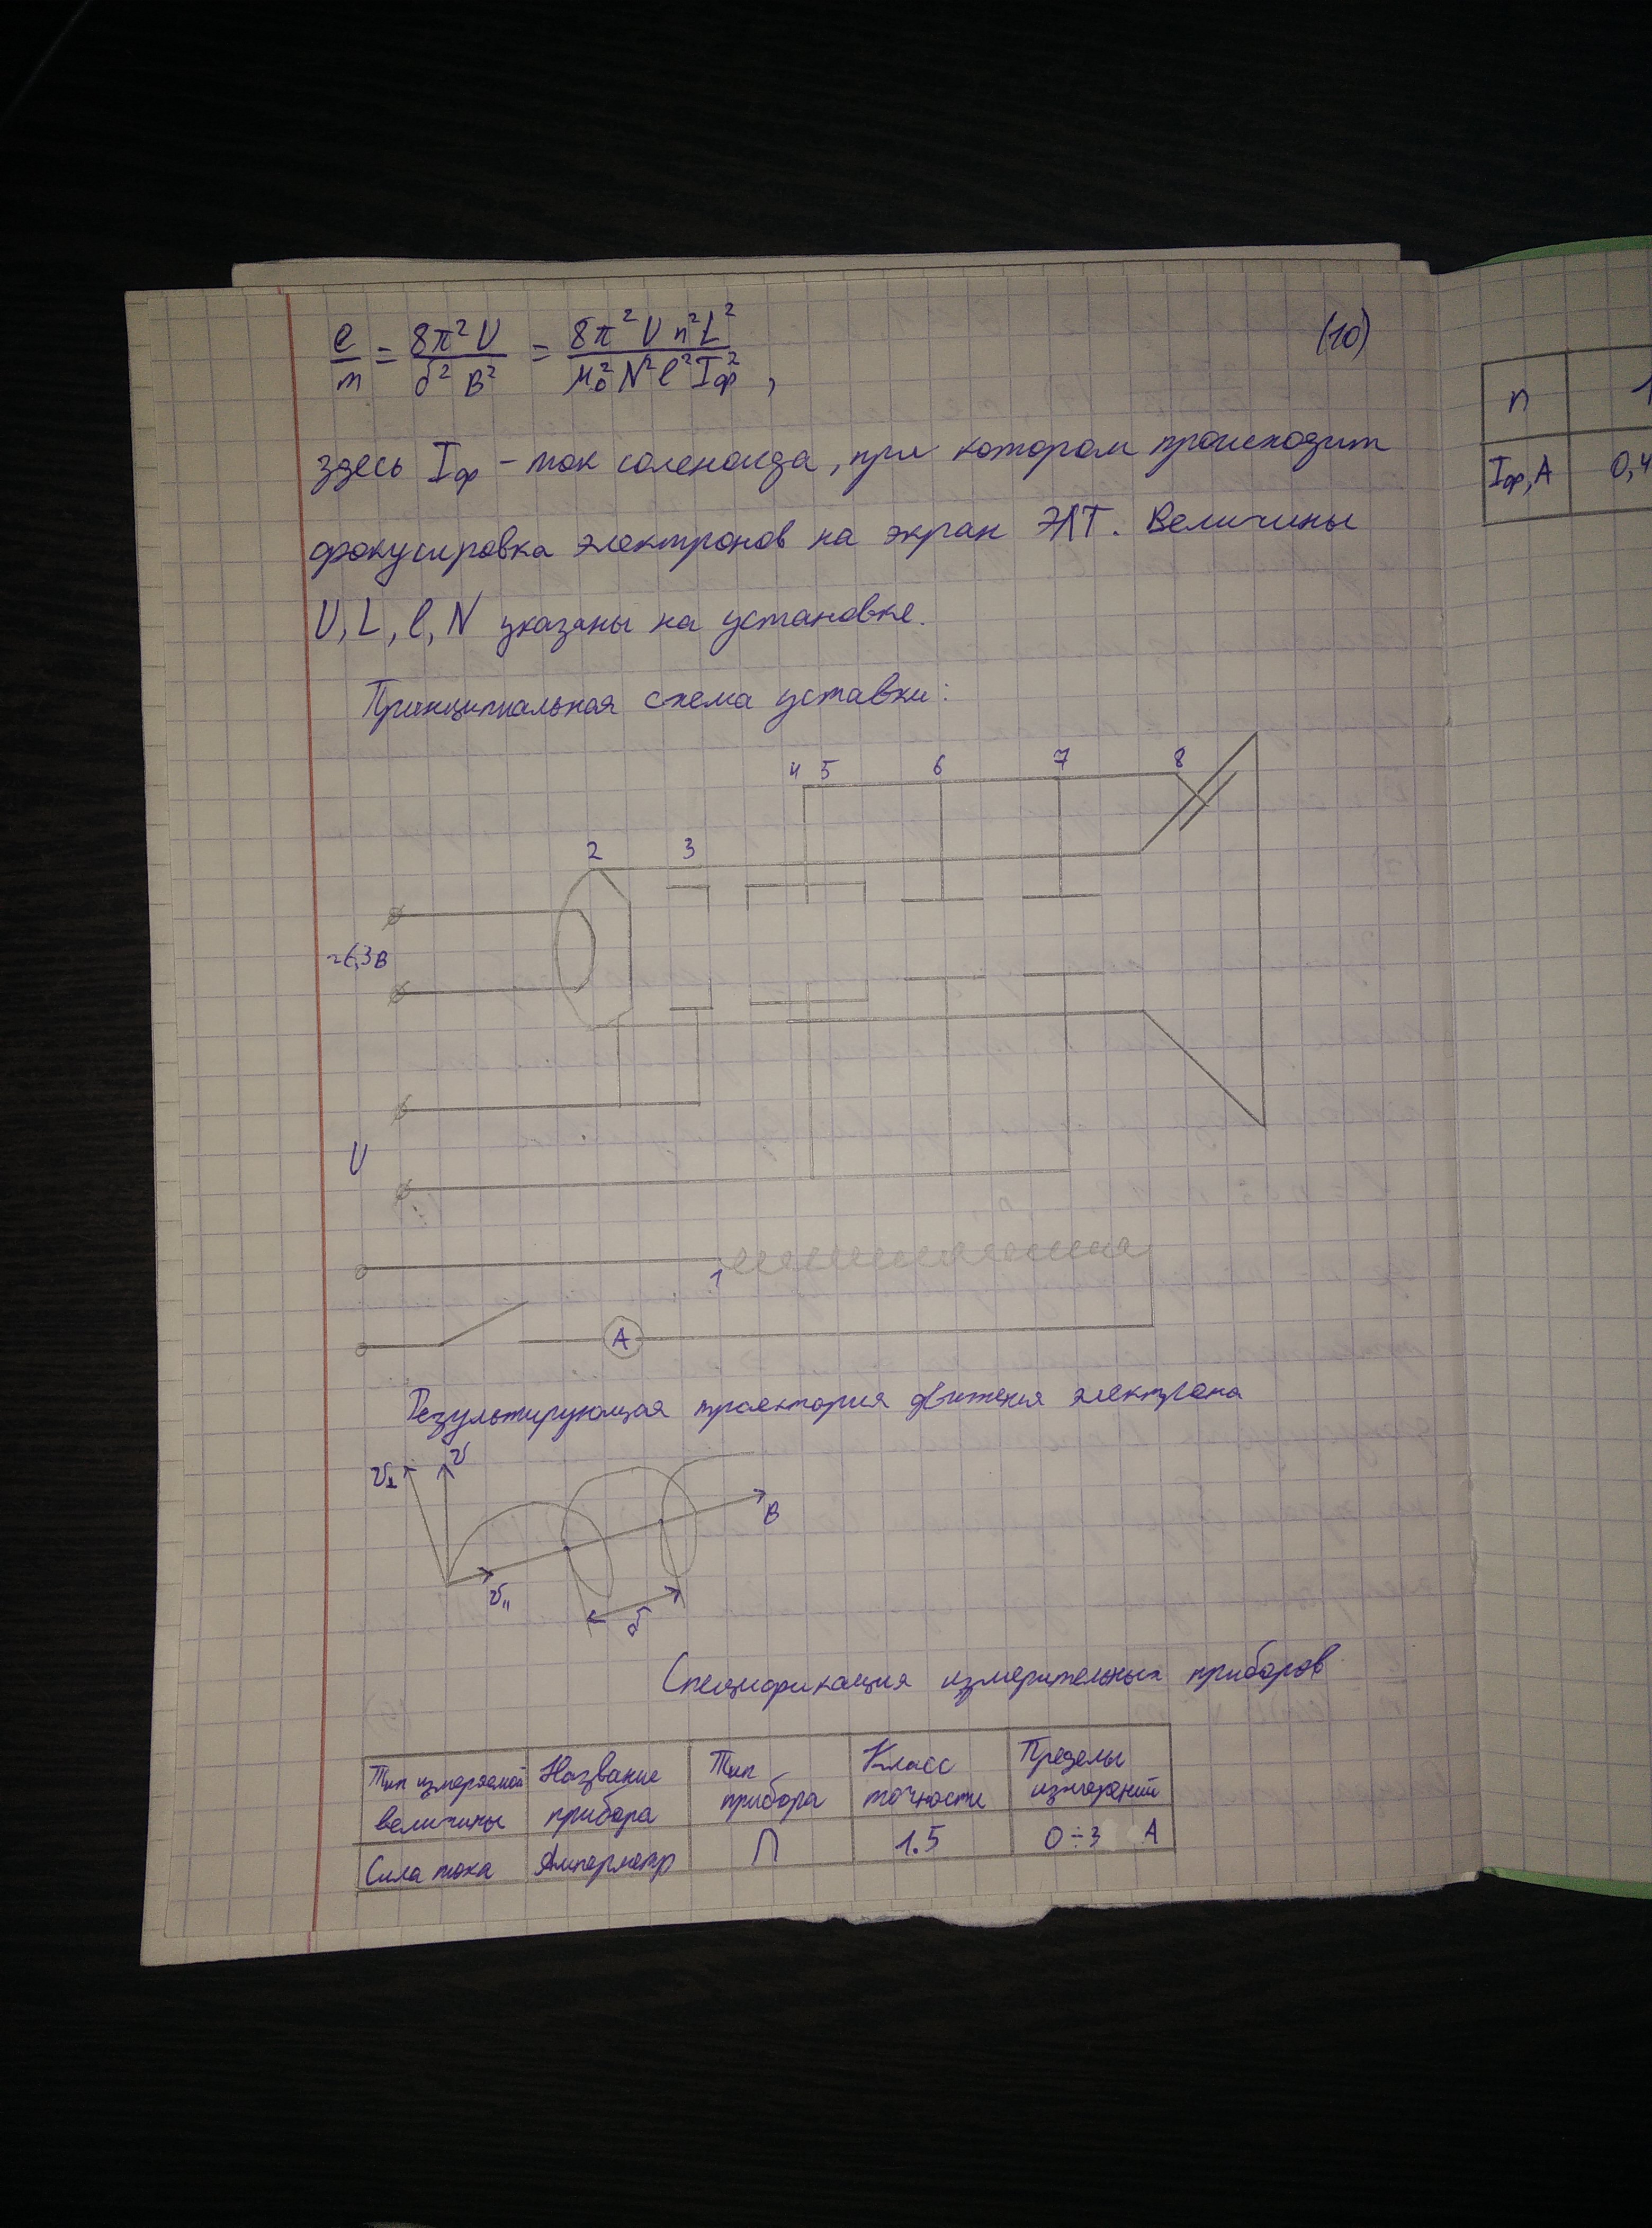 e/m = 8π²U/δ²B² = 8π²U n²L²/μ₀²N²l²Iф², (10)
здесь Iф - ток соленоида, при котором происходит
фокусировка электронов на экран ЭЛТ. Величины
U, L, l, N указаны на установке.
Принципиальная схема уставки:
4 5 6 7 8
2 3
~6,3В
U
1
A
Результирующая траектория движения электрона
v⊥ v
B
v₁₁
δ
Спецификация измерительных приборов
Тип измеряемой величины Название прибора Тип прибора Класс точности Пределы измерений
Сила тока Амперметр П 1.5 0÷3 А
n 1
Iф, А 0,4